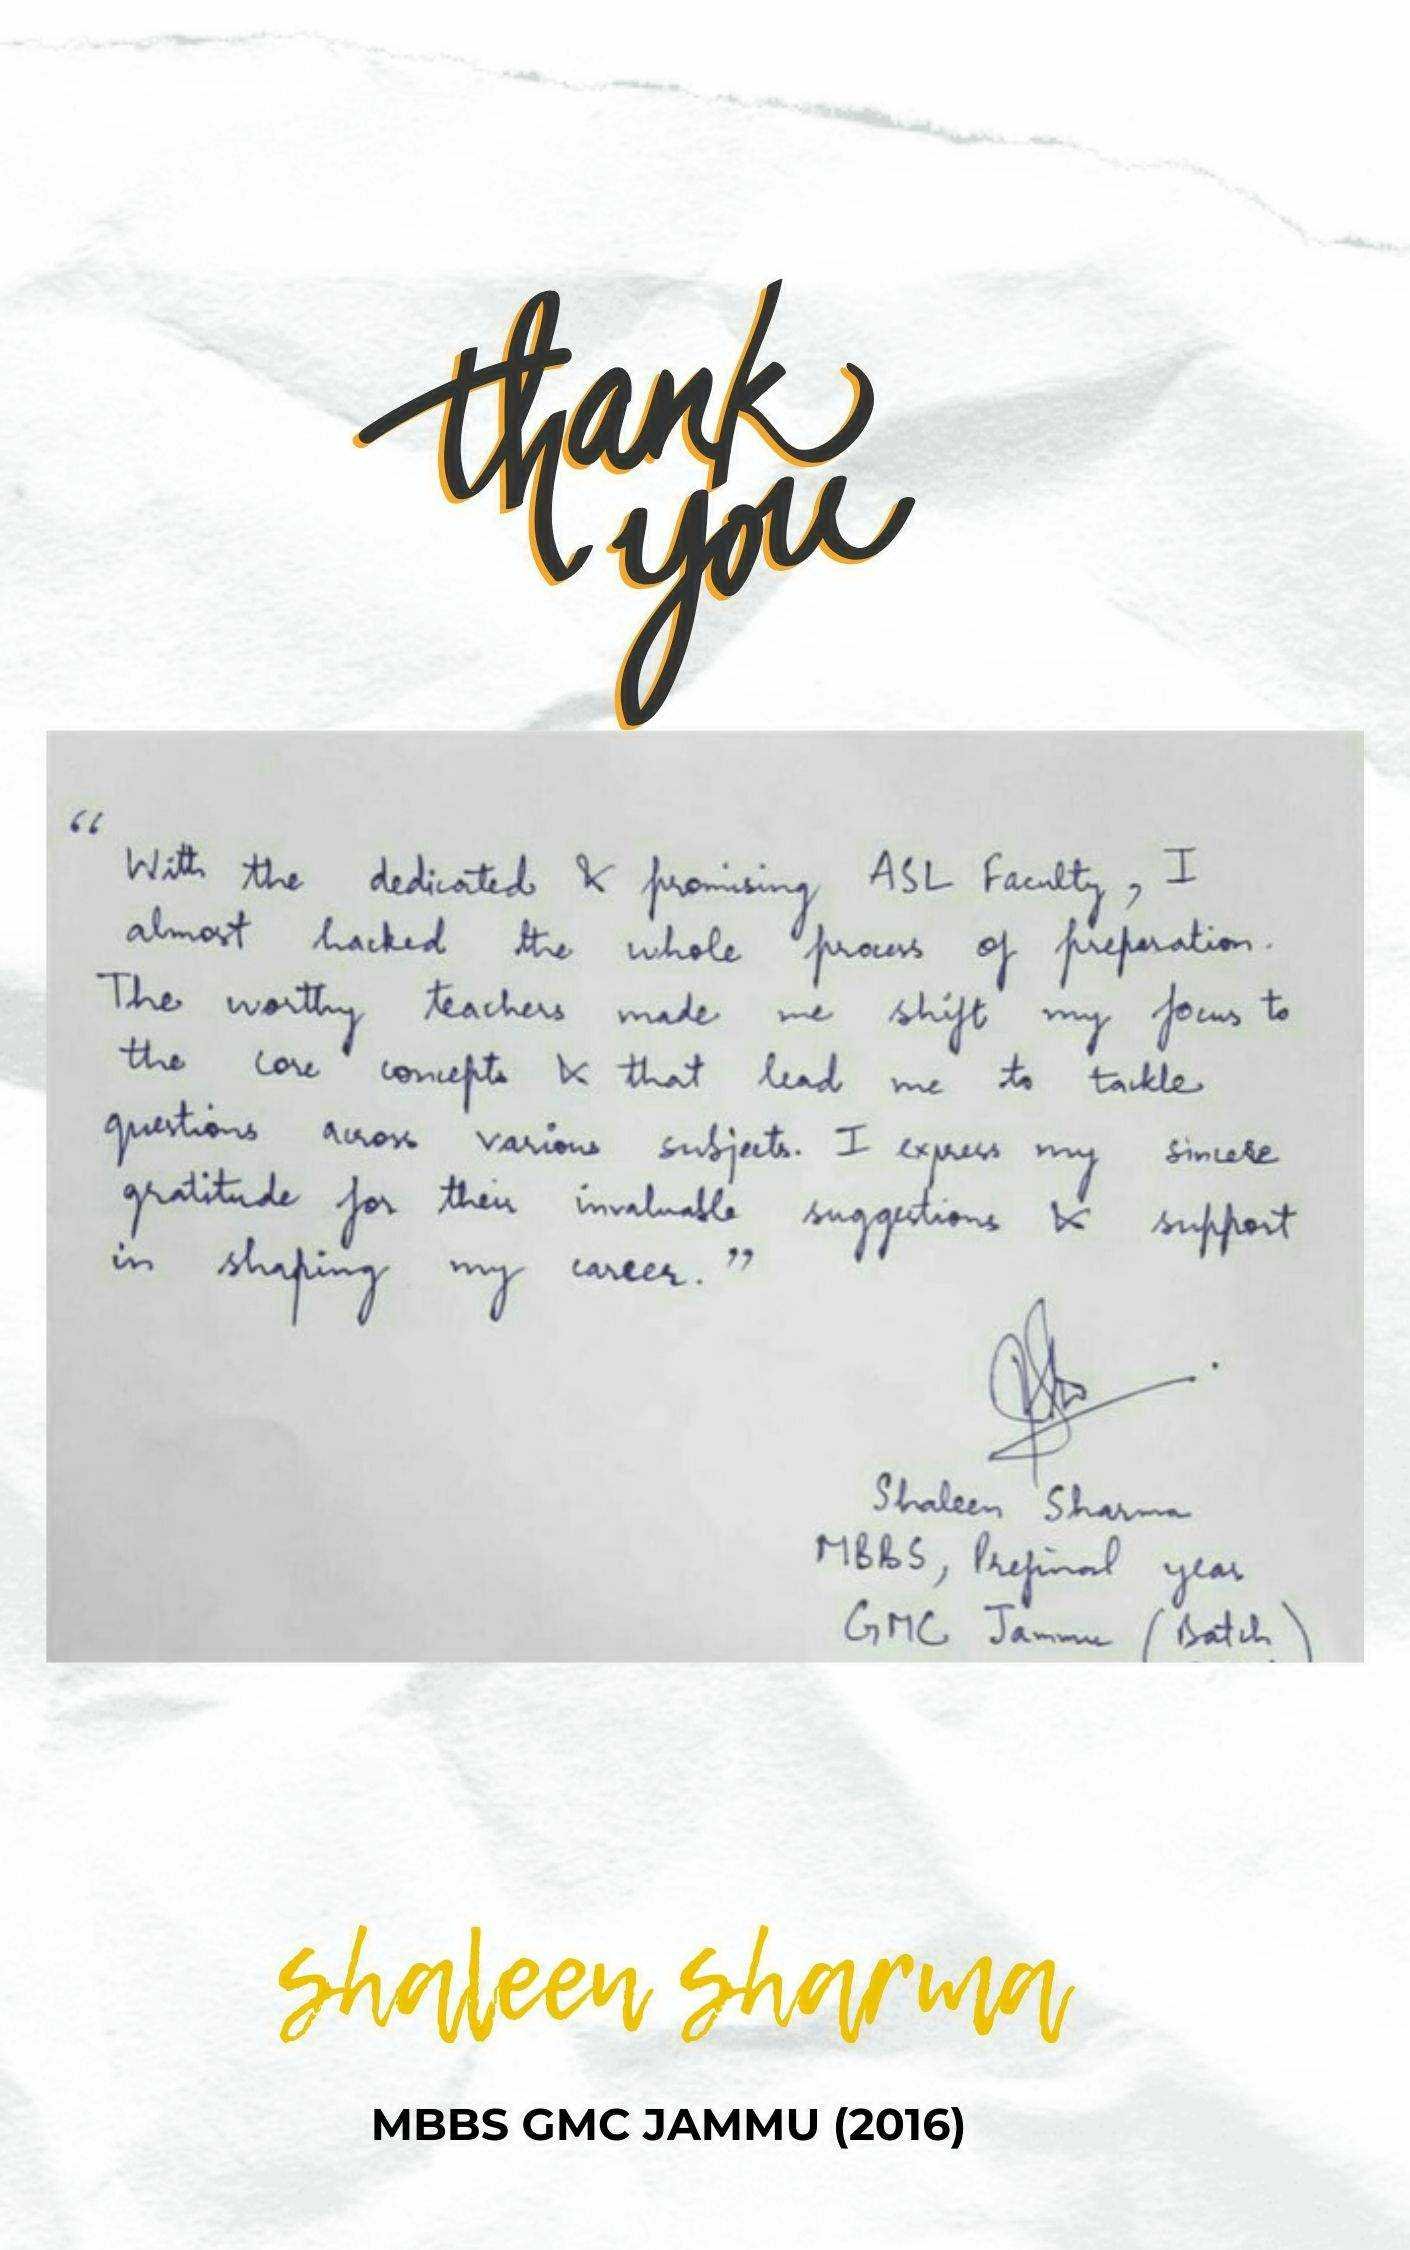 thank
you
“
With the dedicated & promising ASL Faculty, I
almost hacked the whole process of preparation.
The worthy teachers made me shift my focus to
the core concepts & that lead me to tackle
questions across various subjects. I express my sincere
gratitude for their invaluable suggestions & support
in shaping my career.”
Shaleen Sharma
MBBS, Prefinal year
GMC Jammu (Batch
shaleen sharma
MBBS GMC JAMMU (2016)